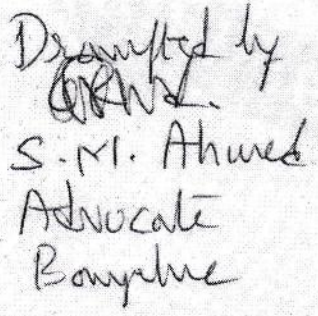 Dramfted by
S.M. Ahmed
Advocate
Bangalore